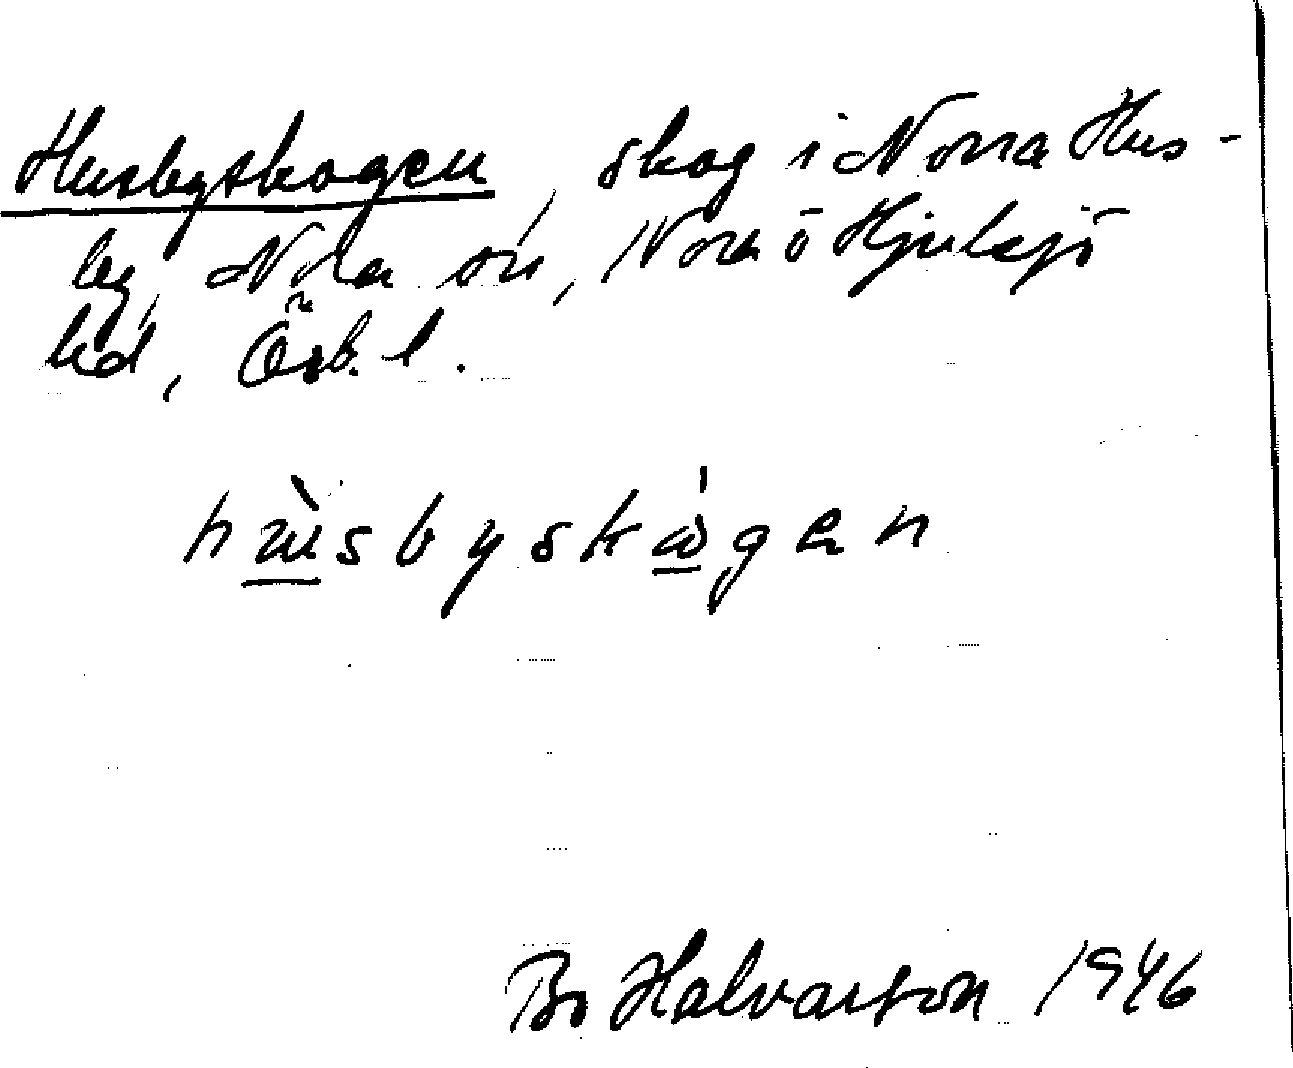 Husbyskogen, skog i Norra Hus-
by, Nora sn, Nora o Hjulsjö
hd, Örb. l.
husbyskogen
Bo Halvarson 1946